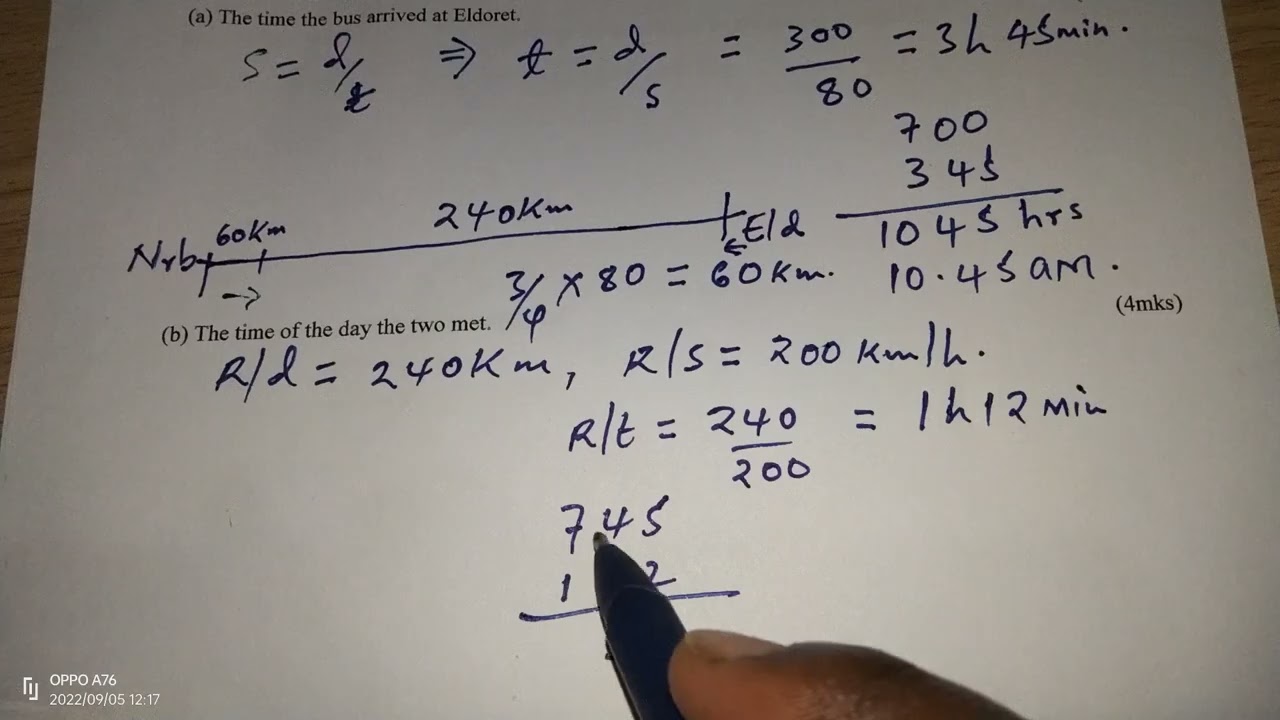 (a) The time the bus arrived at Eldoret.
S = d/t ⇒ t = d/s = 300/80 = 3h 45min.
700
345
1045 hrs
10.45 am.
60Km 240Km
Nrb Eld
3/4 × 80 = 60Km.
(4mks)
(b) The time of the day the two met.
R/d = 240Km, R/s = 200 Km/h.
R/t = 240/200 = 1h 12 min
745
1 2
OPPO A76
2022/09/05 12:17